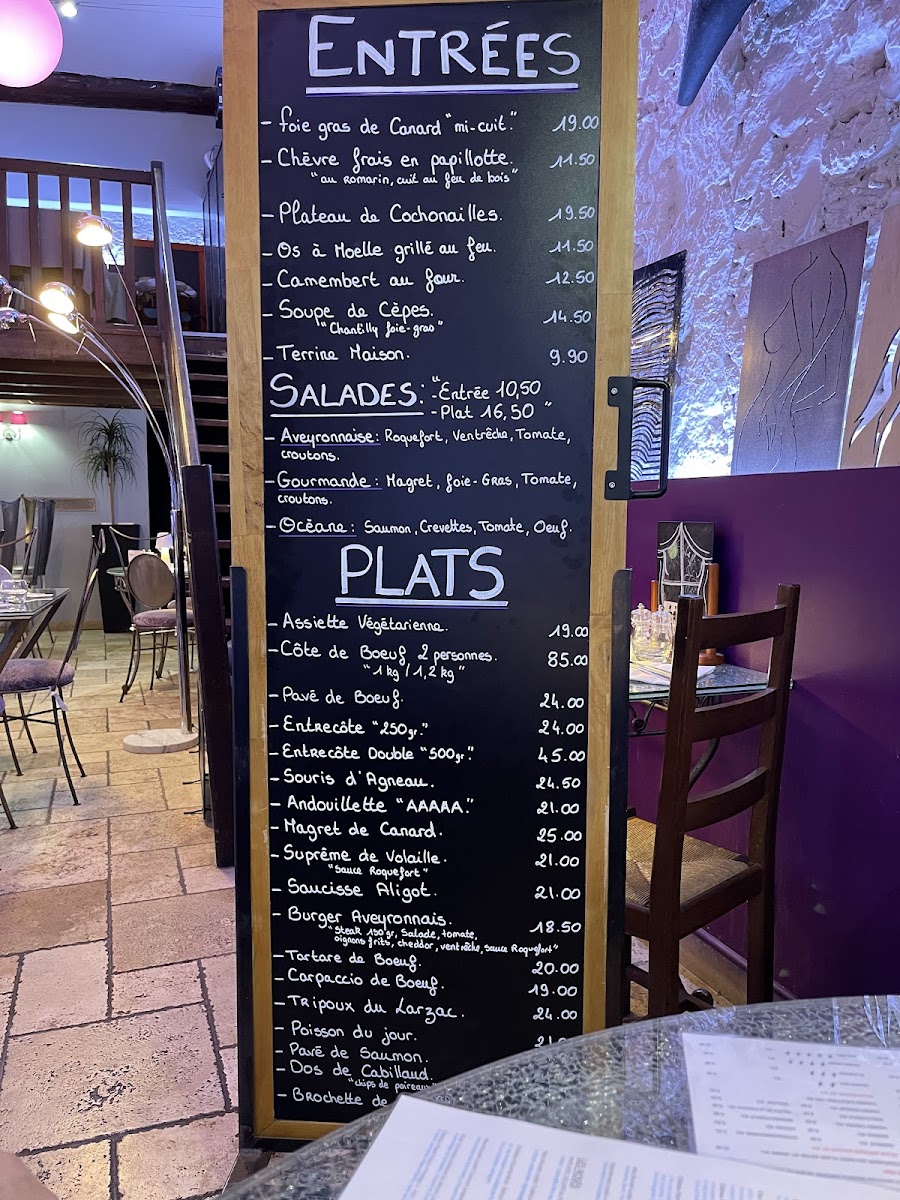 ENTRÉES
- foie gras de Canard "mi-cuit." 19.00
- Chèvre frais en papillotte. 11.50
"au Romarin, cuit au feu de bois"
- Plateau de Cochonailles. 19.50
- Os à Moelle grillé au feu. 11.50
- Camembert au four. 12.50
- Soupe de Cèpes. 14.50
"Chantilly foie-gras"
- Terrine Maison. 9.90
SALADES: "-Entrée 10,50
-Plat 16,50 "
- Aveyronnaise: Roquefort, Ventrêche, Tomate,
croutons.
- Gourmande: Magret, foie-Gras, Tomate,
croutons.
- Océane: Saumon, Crevettes, Tomate, Oeuf.
PLATS
- Assiette Végétarienne. 19.00
- Côte de Boeuf 2 personnes. 85.00
"1 kg / 1,2 kg"
- Pavé de Boeuf. 24.00
- Entrecôte "250gr." 24.00
- Entrecôte Double "500gr." 45.00
- Souris d'Agneau. 24.50
- Andouillette "AAAAA." 21.00
- Magret de Canard. 25.00
- Suprême de Volaille. 21.00
"Sauce Roquefort"
- Saucisse Aligot. 21.00
- Burger Aveyronnais. 18.50
"Steak 150gr, Salade, tomate,
oignons frits, cheddar, ventrêche, sauce Roquefort"
- Tartare de Boeuf. 20.00
- Carpaccio de Boeuf. 19.00
- Tripoux du Larzac. 24.00
- Poisson du jour.
- Pavé de Saumon.
- Dos de Cabillaud.
"chips de poireaux"
- Brochette de